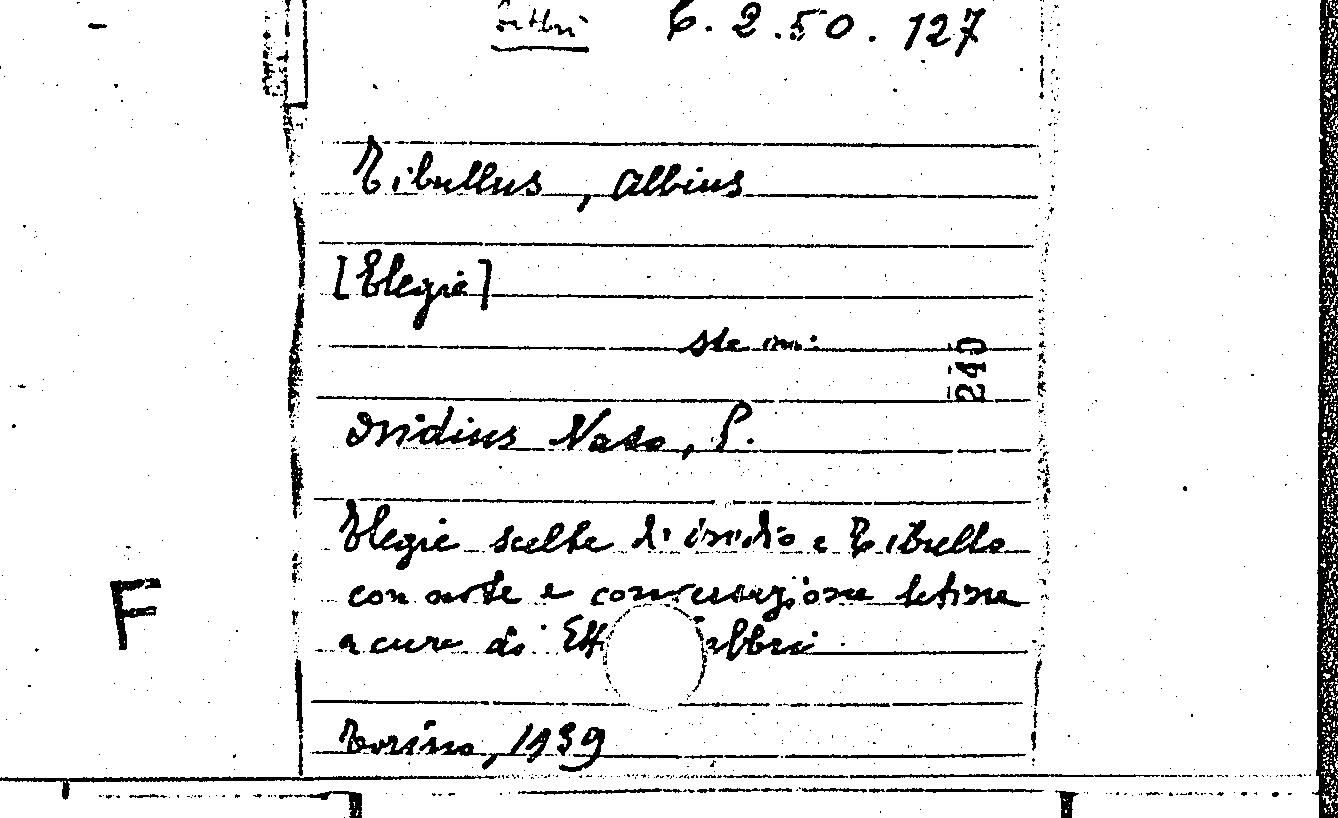 6.2.50.127
Tibullus, Albius
[Elegie]
240
Ovidius Naso, P.
Elegie scelte di Ovidio e Tibullo
con note e conversazione latina
a cura di Ett abbri
F
Torino, 1939